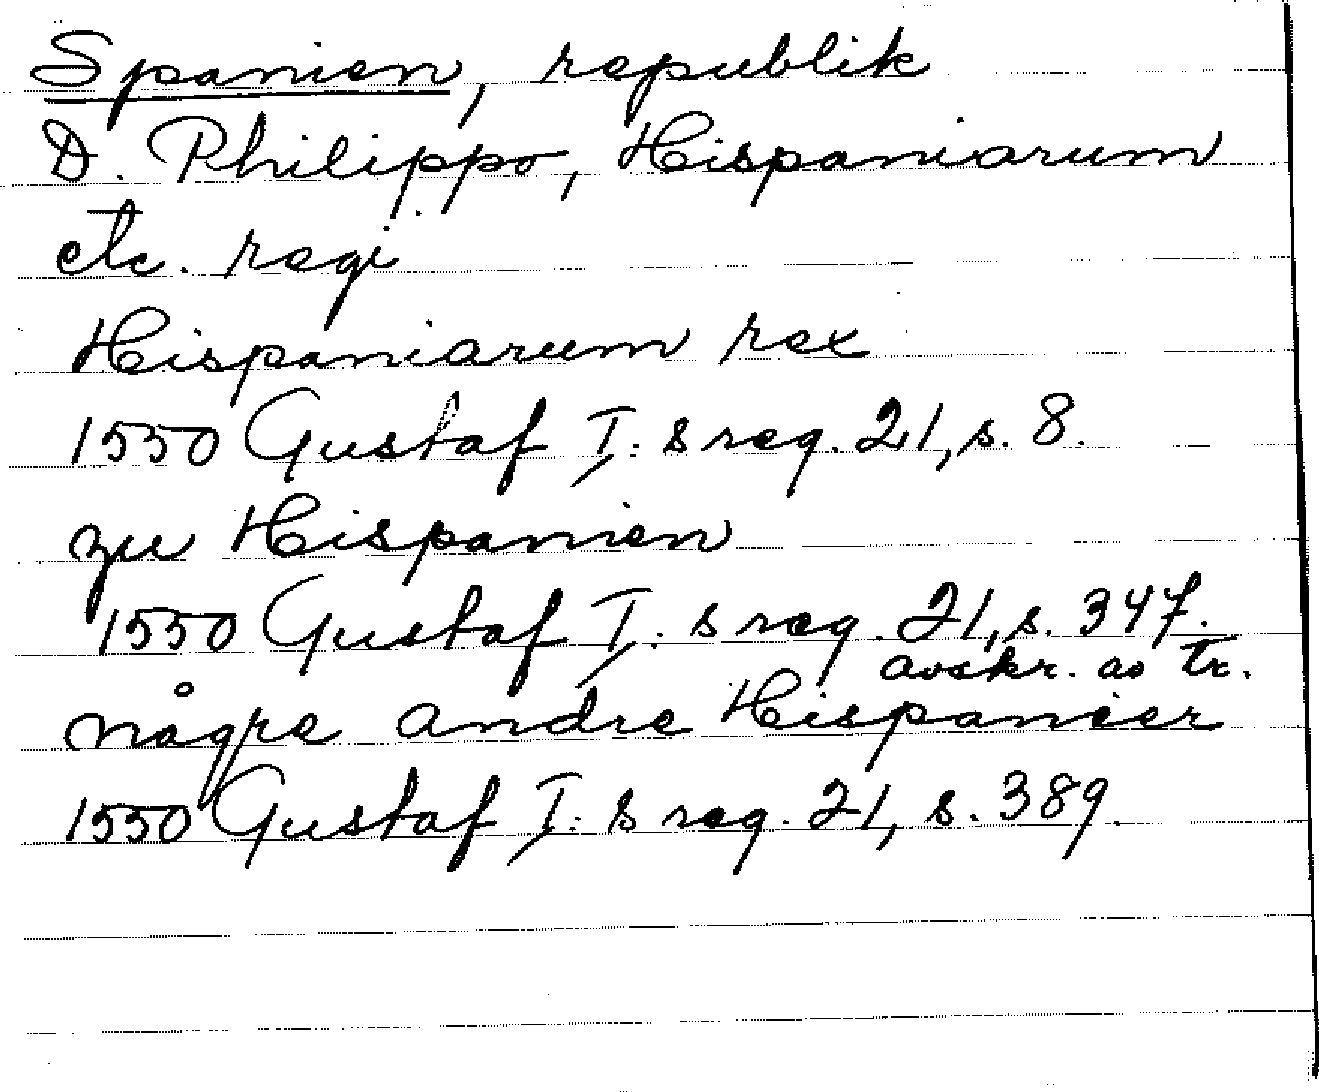 Spanien, republik
D. Philippo, Hispaniarum
etc. regi
Hispaniarum rex
1550 Gustaf I:s reg. 21, s. 8.
zu Hispanien
1550 Gustaf I:s reg. 21, s. 347.
avskr. av tr.
någre andre Hispanier
1550 Gustaf I:s reg. 21, s. 389.